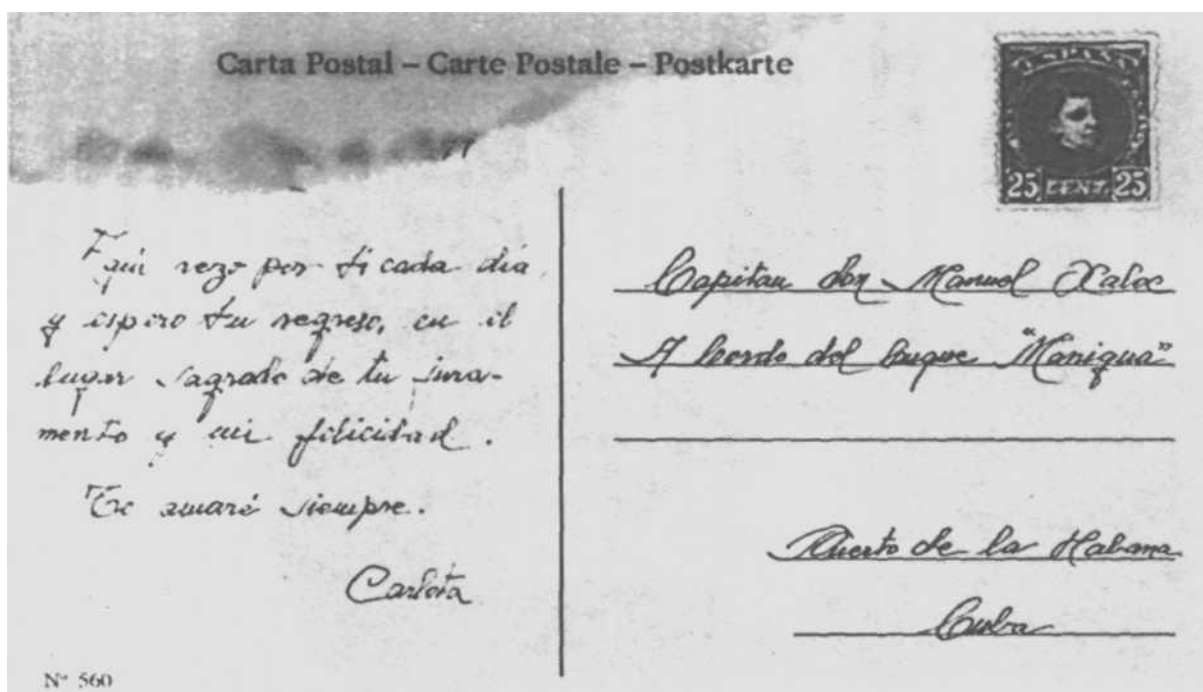 Carta Postal – Carte Postale – Postkarte
ESPAÑA
25 CENT. 25
Aquí rezo por ti cada día
y espero tu regreso, en el
lugar sagrado de tu jura-
mento y mi felicidad.
Te amaré siempre.
Carlota
Nº 560
Capitan don Manuel Xaloc
A bordo del buque "Manigua"
Puerto de la Habana
Cuba